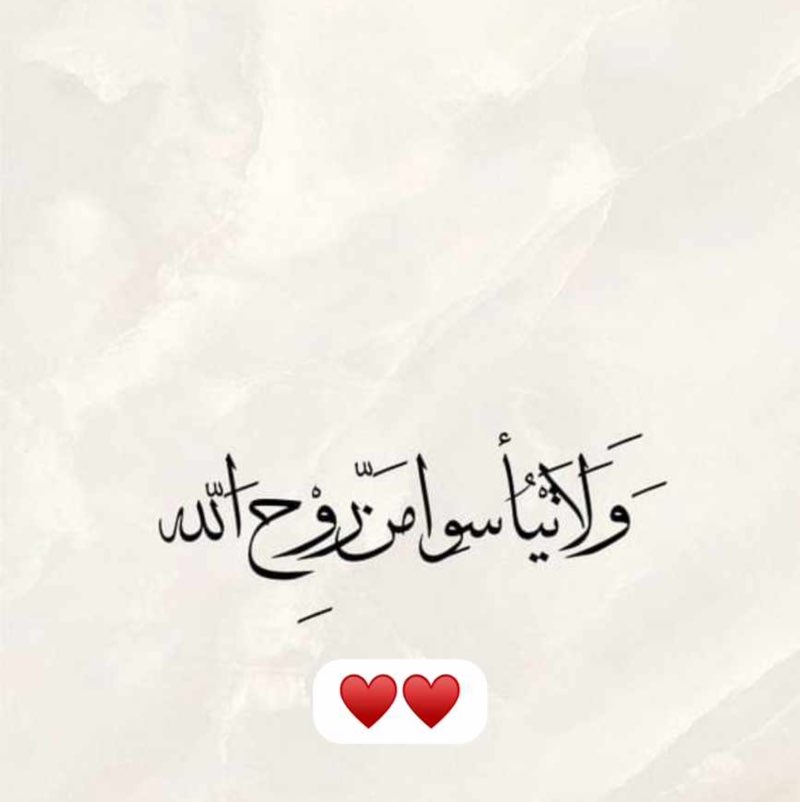 وَلَا تَيْأَسُوا مِن رَّوْحِ اللَّهِ
♥️♥️